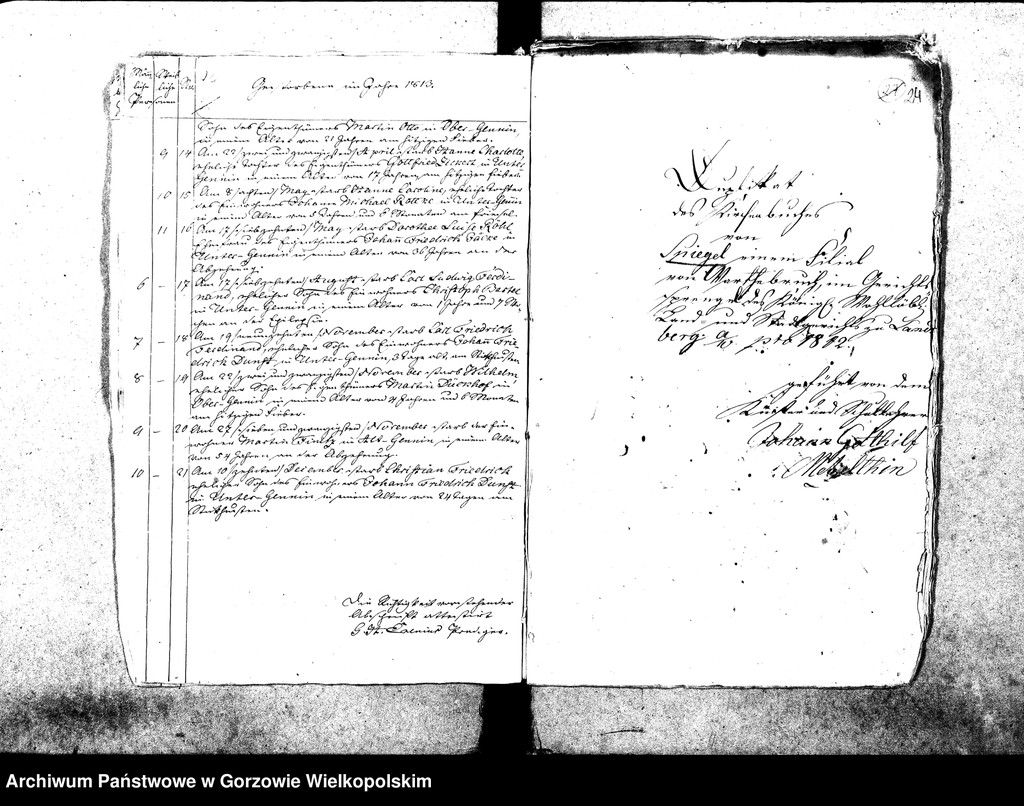 Män
liche
Weib
liche
No
Personen
Gestorbene im Jahre 1813.
Sohn des Eigenthümers Martin Otto in Ober-Gennin,
in einem Alter von 21 Jahren am hitzigen Fieber.
9 14 Am 22/zwei und zwanzigsten/ April starb Hanne Charlotte
eheliche Tochter des Eigenthümers Gottfried in Unter
Gennin in einem Alter von 17 Jahren, am hitzigen Fieber.
10 15 Am 8/achten/ May starb Hanne Caroline, eheliche Tochter
des Einwohners Johann Michael in Unter-Gennin
in einem Alter von Jahren und 8 Monaten am
11 16 Am 17/siebzehnten/ May starb Dorothee Luise
Ehefrau des Eigenthümers Johann Friedrich in
Unter-Gennin in einem Alter von 36 Jahren an der
Abzehrung.
6 – 17 Am 17/siebzehnten/ August starb Carl Ludwig Ferdi-
nand, ehelicher Sohn des Einwohners Christoph Bartel
in Unter-Gennin in einem Alter von 1 Jahr und 7 Wo-
chen an der Epilepsie.
7 – 18 Am 19/neunzehnten/ November starb Carl Friedrich
Ferdinand, ehelicher Sohn des Einwohners Johann Frie
drich Dunst in Unter-Gennin, 3 Tage alt, am Stickhusten
8 – 19 Am 22/zwei und zwanzigsten/ November starb Wilhelm
ehelicher Sohn des Eigenthümers Martin in
Ober-Gennin in einem Alter von 4 Jahren und 6 Monaten
am hitzigen Fieber.
9 – 20 Am 27/sieben und zwanzigsten/ November starb der Ein-
wohner Martin in Alt-Gennin in einem Alter
von 54 Jahren, an der Abzehrung.
10 – 21 Am 10/zehnten/ December starb Christian Friedrich
ehelicher Sohn des Einwohners Johann Friedrich Dunst
in Unter-Gennin in einem Alter von 24 Tagen am
Stickhusten.
Die Richtigkeit vorstehender
Abschrift attestirt
Prediger.
24
Duplikat
des Kirchenbuches
von
Spiegel einem Filial
von Warthebruch, im Gerichts
sprengel des Königl. Wohllöbl.
Land- und Stadtgerichts zu Lands
berg a/W. pro 1812.
geführt von dem
Küster und Schullehrer
Johann Gotthilf
Archiwum Państwowe w Gorzowie Wielkopolskim